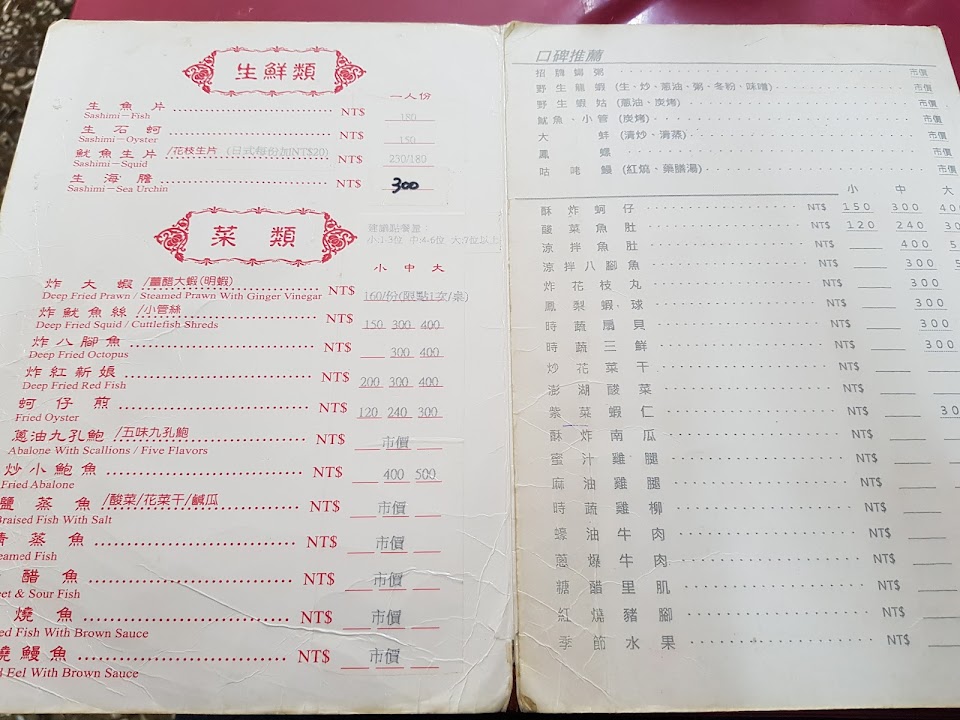 生鮮類
一人份
生魚片 NT$ 180
Sashimi－Fish
生石蚵 NT$ 150
Sashimi－Oyster
魷魚生片/花枝生片（日式每份加NT$20） NT$ 230/180
Sashimi－Squid
生海膽 NT$ 300
Sashimi－Sea Urchin
菜類
建議點餐量：
小:1-3位 中:4-6位 大:7位以上
小 中 大
炸大蝦/薑醋大蝦(明蝦) NT$ 160/份(限點1次/桌)
Deep Fried Prawn / Steamed Prawn With Ginger Vinegar
炸魷魚絲/小管絲 NT$ 150 300 400
Deep Fried Squid / Cuttlefish Shreds
炸八腳魚 NT$ 300 400
Deep Fried Octopus
炸紅新娘 NT$ 200 300 400
Deep Fried Red Fish
蚵仔煎 NT$ 120 240 300
Fried Oyster
蔥油九孔鮑/五味九孔鮑 NT$ 市價
Abalone With Scallions / Five Flavors
炒小鮑魚 NT$ 400 500
Fried Abalone
鹽蒸魚/酸菜/花菜干/鹹瓜 NT$ 市價
Braised Fish With Salt
清蒸魚 NT$ 市價
eamed Fish
醋魚 NT$ 市價
et & Sour Fish
燒魚 NT$ 市價
ed Fish With Brown Sauce
燒鰻魚 NT$ 市價
d Eel With Brown Sauce
口碑推薦
招牌鍋粥 市價
野生龍蝦(生、炒、蔥油、粥、冬粉、味噌) 市價
野生蝦姑(蔥油、炭烤) 市價
魷魚、小管(炭烤) 市價
大蚌(清炒、清蒸) 市價
鳳螺 市價
咕咾鰻(紅燒、藥膳湯) 市價
小 中 大
酥炸蚵仔 NT$ 150 300 40
酸菜魚肚 NT$ 120 240 30
涼拌魚肚 NT$ 400 5
涼拌八腳魚 NT$ 300 5
炸花枝丸 NT$ 300
鳳梨蝦球 NT$ 300
時蔬扇貝 NT$ 300
時蔬三鮮 NT$ 300
炒花菜干 NT$
澎湖酸菜 NT$
紫菜蝦仁 NT$ 30
酥炸南瓜 NT$
蜜汁雞腿 NT$
麻油雞腿 NT$
時蔬雞柳 NT$
蠔油牛肉 NT$
蔥爆牛肉 NT$
糖醋里肌 NT$
紅燒豬腳 NT$
季節水果 NT$